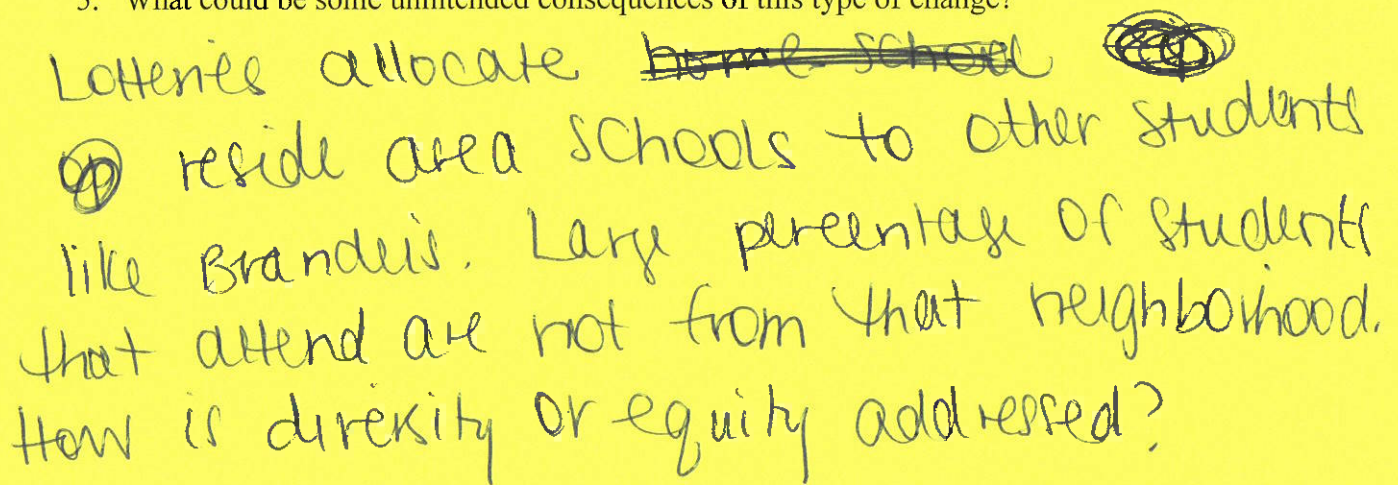 3. What could be some unintended consequences of this type of change?
Lotteries allocate home school
reside area schools to other students
like Brandeis. Large percentage of students
that attend are not from that neighborhood.
How is diversity or equity addressed?